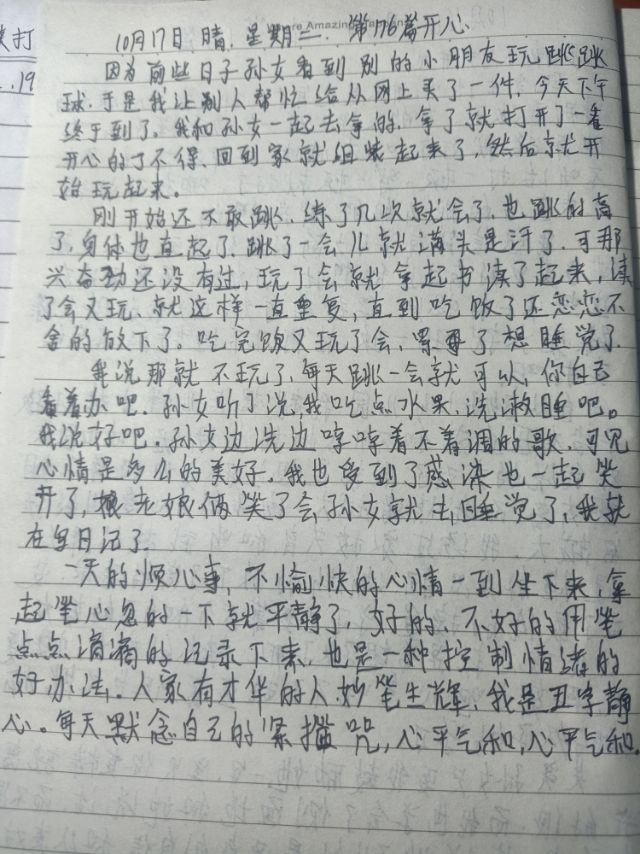 Where Amazing Happens
10月17日 晴. 星期二. 第176篇开心
因为前些日子孙女看到别的小朋友玩跳跳
球.于是我让别人帮忙给从网上买了一件.今天下午
终于到了.我和孙女一起去拿的.拿了就打开了一看
开心的了不得.回到家就组装起来了,然后就开
始玩起来.
刚开始还不敢跳.练了几次就会了.也跳的高
了,身体也直起了.跳了一会儿就满头是汗了.可那
兴奋劲还没有过,玩了会就拿起书读了起来,读
了会又玩、就这样一直重复,直到吃饭了还恋恋不
舍的放下了.吃完饭又玩了会、累了想睡觉了.
我说那就不玩了,每天跳一会就可以,你自己
看着办吧.孙女听了说我吃点水果.洗漱睡吧。
我说好吧.孙女边洗边哼哼着不着调的歌.可见
心情是多么的美好.我也受到了感染也一起笑
开了,老娘俩笑了会孙女就去睡觉了,我就
在写日记了.
一天的烦心事,不愉快的心情一到坐下来,拿
起笔心忽的一下就平静了,好的、不好的用笔
点点滴滴的记录下来.也是一种控制情绪的
好办法.人家有才华的人妙笔生辉、我是丑字静
心。每天默念自己的紧箍咒,心平气和,心平气和.
打
.19